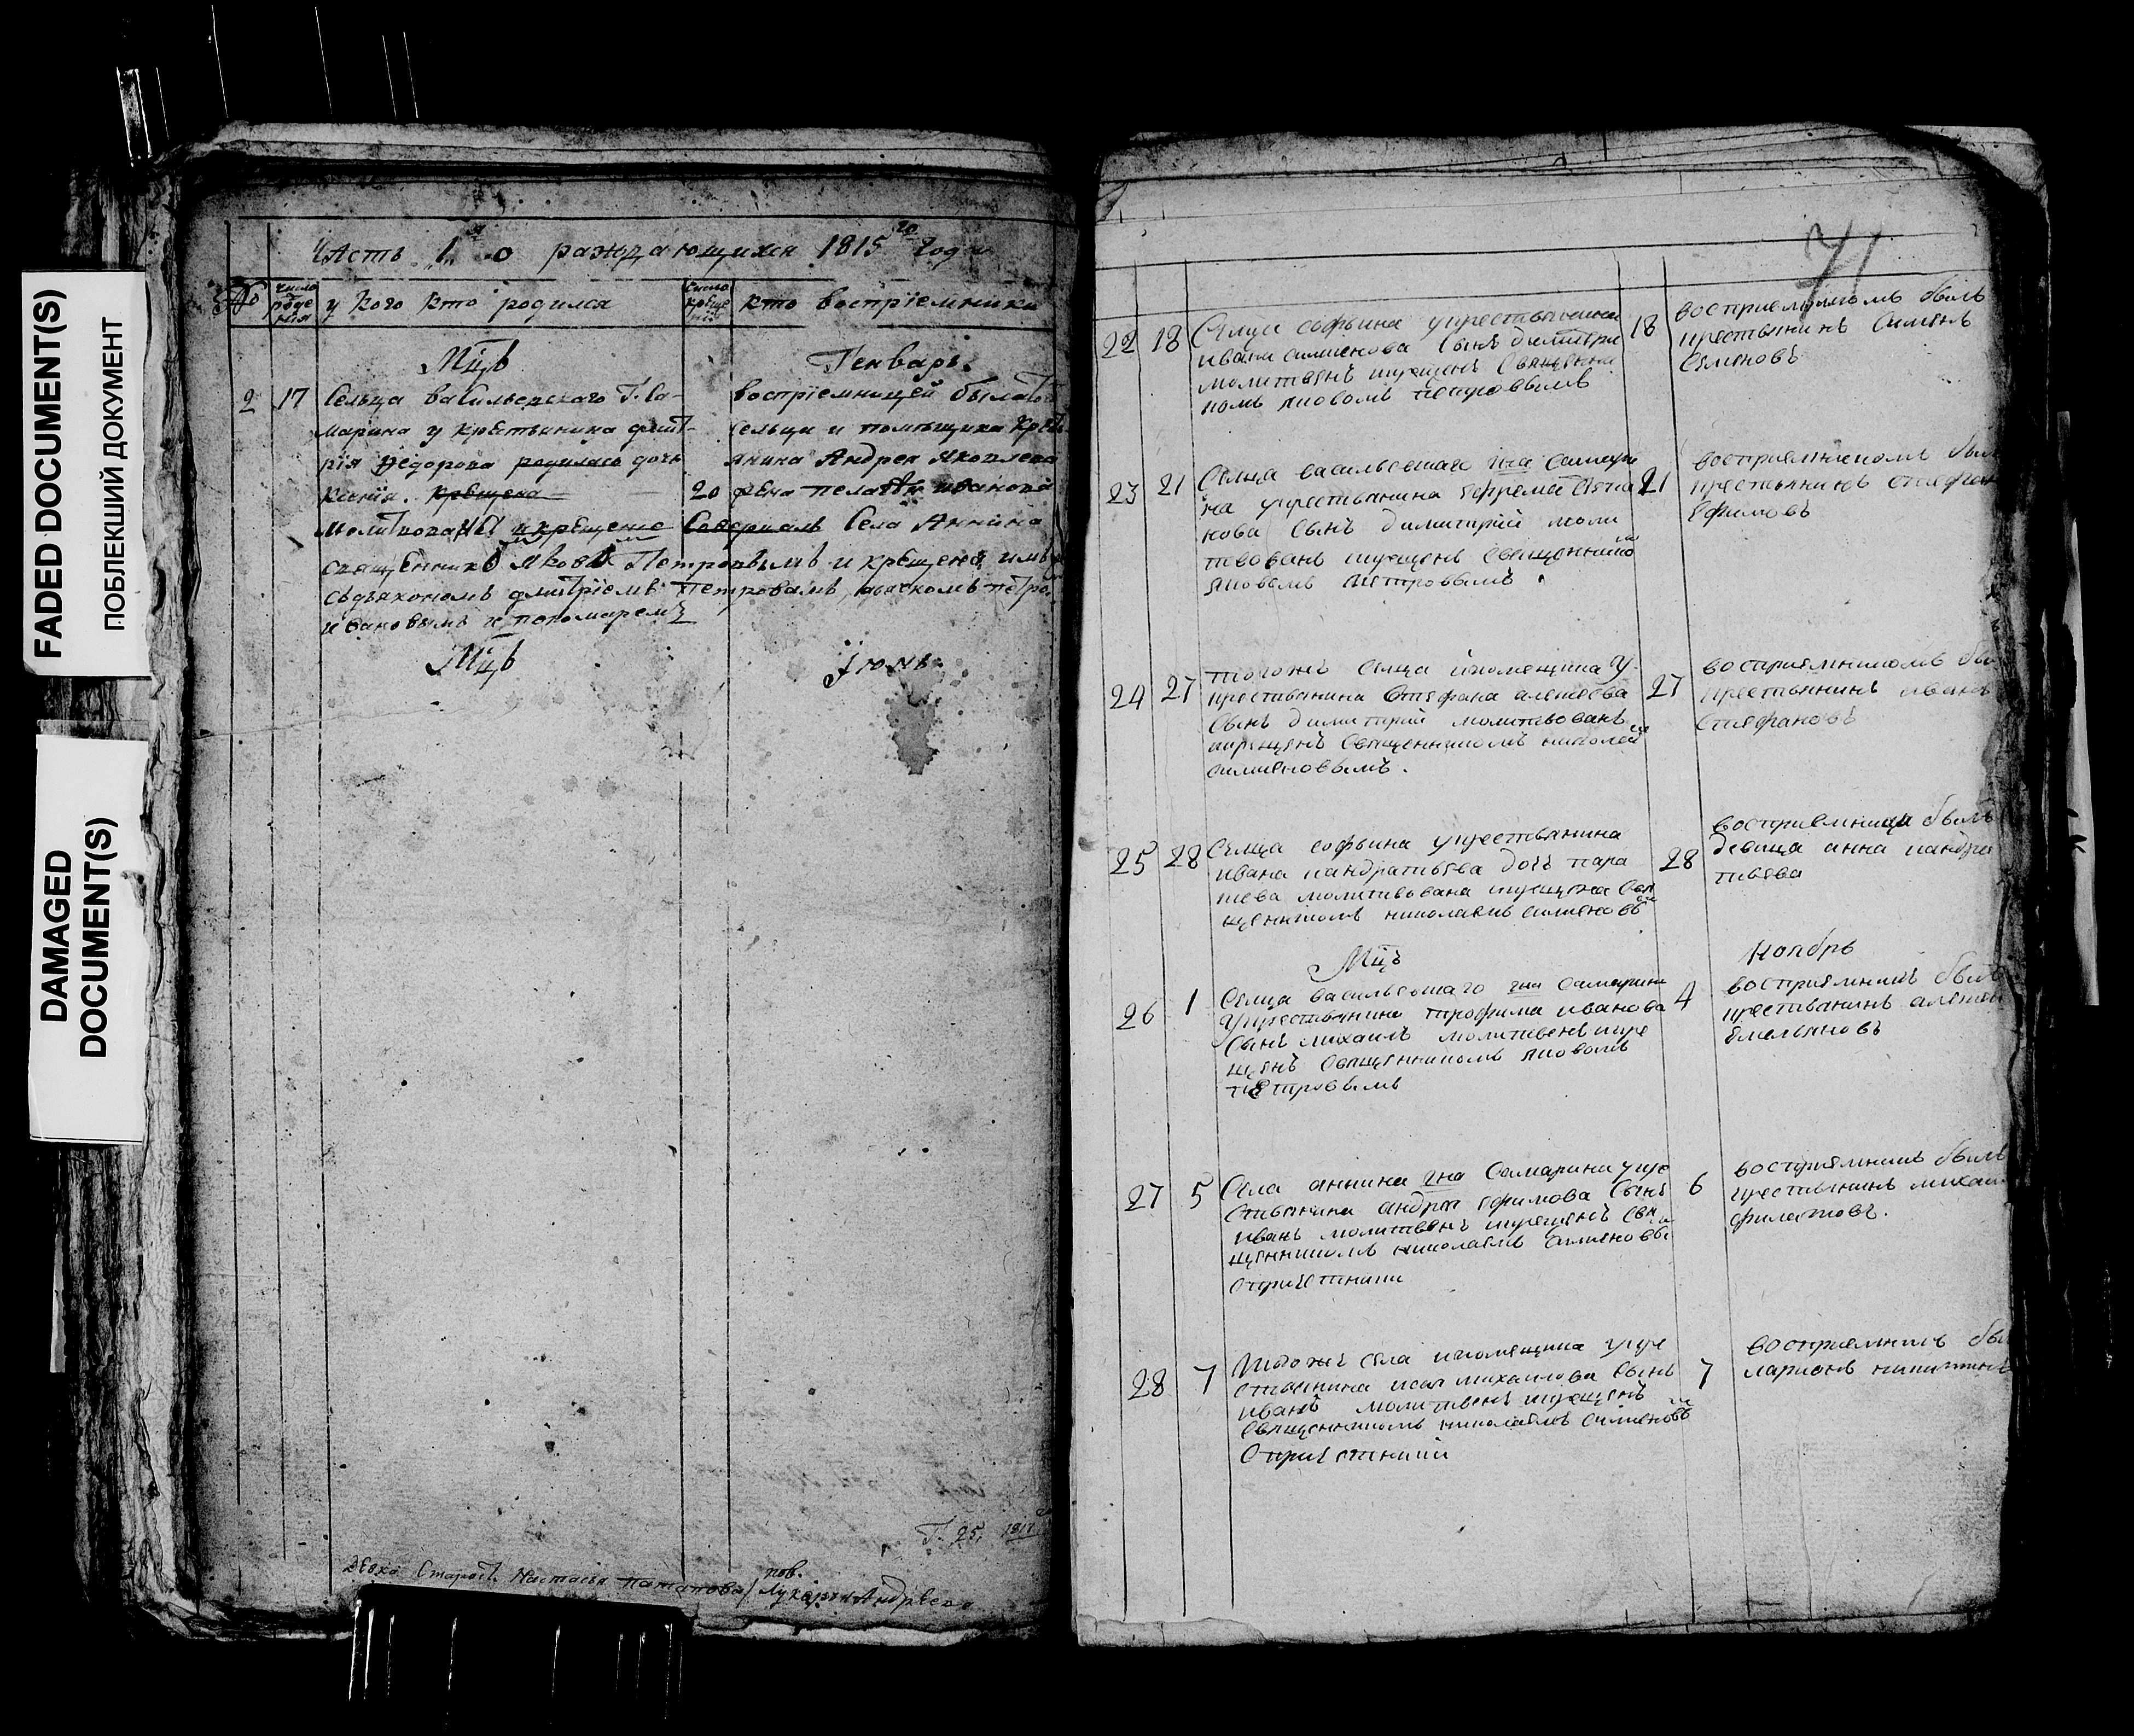 FADED DOCUMENT(S)
ПОБЛЕКШИЙ ДОКУМЕНТ
DAMAGED
DOCUMENT(S)
Часть 1я о раждающихся 1815го Года
№
число рожде нія
у кого кто родился
число креще нія
кто воспріемники
Мцъ Генварь.
2 17 Сельца васильевскаго Г. Са-
марина у крестьянина дмит-
рія Федорова родилась дочь
ксенія. крещена
молитвована и крещение Совершал Села Аннина
священнико Яковъ Петровымъ и крещена имъ
съдьякономъ дмитріемъ Петровамъ, дьячкомъ петро
ивановымъ и пономаремъ
20
воспріемницей была
сельца и помещика крест
янина Андрея Яковлева
Мцъ Іюнь.
Г. 25. 1817
девка Старост. Настасья Потапова/
пов.
Лукерья Андреева
71
22 18 Сельца софьина укрестьянина
ивана симионова Сынъ димитри
молитвенъ икрещенъ Священни
комъ яковомъ петровымъ
18 восприемникомъ былъ
крестьянинъ Симіонъ
Семіновъ
23 21 Селца васильевскаго гна Самари
на укрестьянина ефрема
нова Сынъ димитрій моли
твованъ икрещенъ Священнико
яковомъ петровымъ
21 восприемникомъ был
крестьянинъ стефан
Ефимовъ
24 27 тогожъ селца ипомещика у
крестьянина Стефана алексеева
Сынъ димитрий молитвованъ
икрещенъ Священникомъ николае
симионовымъ.
27 восприемникомъ бы
крестьянинъ иванъ
Стефановъ
25 28 Селца софьина укрестьянина
ивана кандратьева дочь пара
скева молитвована икрещена Свя
щенникомъ николаемъ симионовы
28 восприемница была
девица анна кандра
тьева
Мцъ Ноябрь
26 1 Селца васильевскаго гна Самарина
укрестьянина трофима иванова
Сынъ михаилъ молитвенъ икре
щенъ Священникомъ яковомъ
петровымъ
4 восприемникъ былъ
крестьянинъ алексей
Емельяновъ
27 5 Села аннина гна Самарина укре
стьянина андрея ефимова Сынъ
иванъ молитвенъ икрещенъ Свя
щенникомъ николаемъ Симионовы
Спричетники
6 восприемникъ былъ
крестьянинъ михаи
филатовъ.
28 7 Тогожъ села ипомещика укре
стьянина исая михаилова Сынъ
иванъ молитвенъ икрещенъ
Священникомъ николаемъ Симионовы
Спричетники
7 восприемникъ бы
ларионъ никитинъ